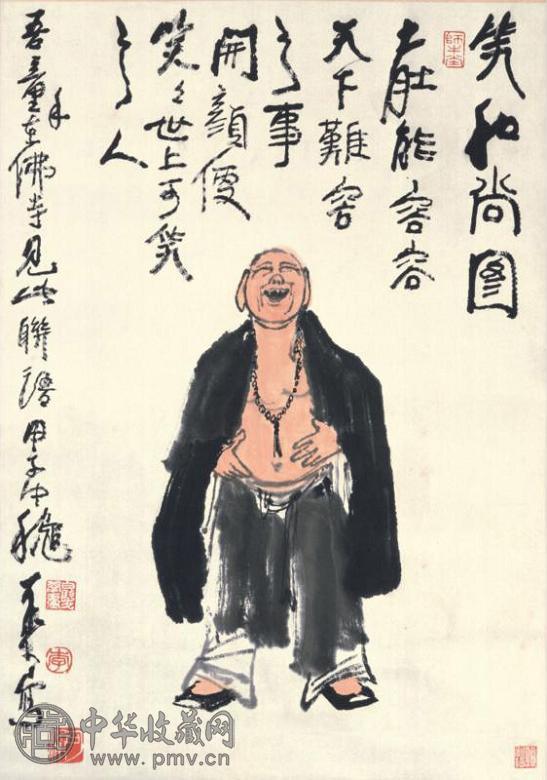 笑和尚圖
師牛堂
大肚能容容
天下難容
之事
開顏便
笑々世上可笑
之人
吾童年在佛寺見此聯語甲子中穐
可染寫
李
中华收藏网
www.pmv.cn